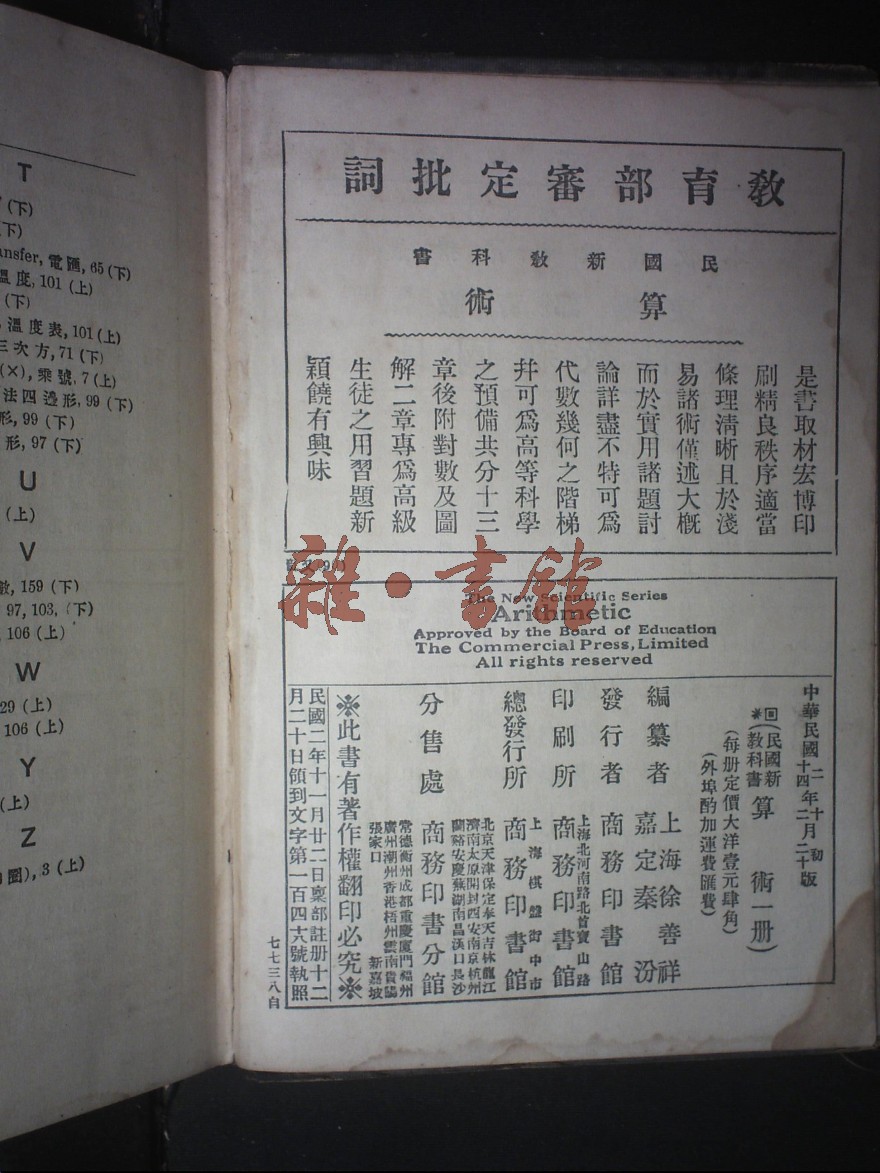 T
(下)
下)
ansfer, 電匯, 65 (下)
溫度, 101 (上)
(下)
溫度表, 101 (上)
三次方, 71 (下)
(×), 乘號, 7 (上)
法四邊形, 99 (下)
形, 99 (下)
形, 97 (下)
U
(上)
V
數, 159 (下)
97, 103, (下)
, 106 (上)
W
29 (上)
106 (上)
Y
(上)
Z
圈), 3 (上)
教育部審定批詞
民國新教科書
算術
是書取材宏博印
刷精良秩序適當
條理清晰且於淺
易諸術僅述大槪
而於實用諸題討
論詳盡不特可爲
代數幾何之階梯
幷可爲高等科學
之預備共分十三
章後附對數及圖
解二章專爲高級
生徒之用習題新
穎饒有興味
The New Scientific Series
Arithmetic
Approved by the Board of Education
The Commercial Press, Limited
All rights reserved
中華民國二年十月初版
十四年二月二十版
回(民國新教科書)算術一册)
(每册定價大洋壹元肆角)
(外埠酌加運費匯費)
編纂者 上海徐善祥
嘉定秦汾
發行者 商務印書館
印刷所 上海北河南路北首寶山路
商務印書館
總發行所 上海棋盤街中市
商務印書館
分售處 北京天津保定奉天吉林龍江
濟南太原開封西安南京杭州
蘭谿安慶蕪湖南昌漢口長沙
商務印書分館
常德衡州成都重慶廈門福州
廣州潮州香港梧州雲南貴陽
張家口 新嘉坡
※此書有著作權翻印必究※
民國二年十一月廿二日稟部註册十二
月二十日領到文字第一百四六號執照
七七三八自
雜·書館